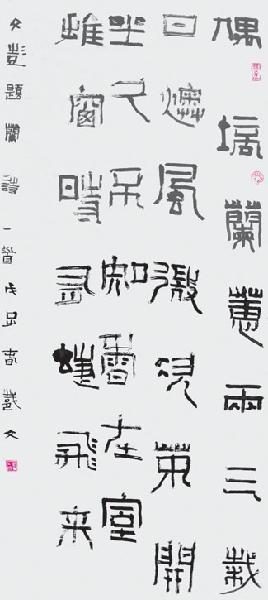 偶培蘭蕙兩三栽
日煖風微次第開
坐久不知香在室
推窗時有蝶飛来
文彭題蘭詩一首戊